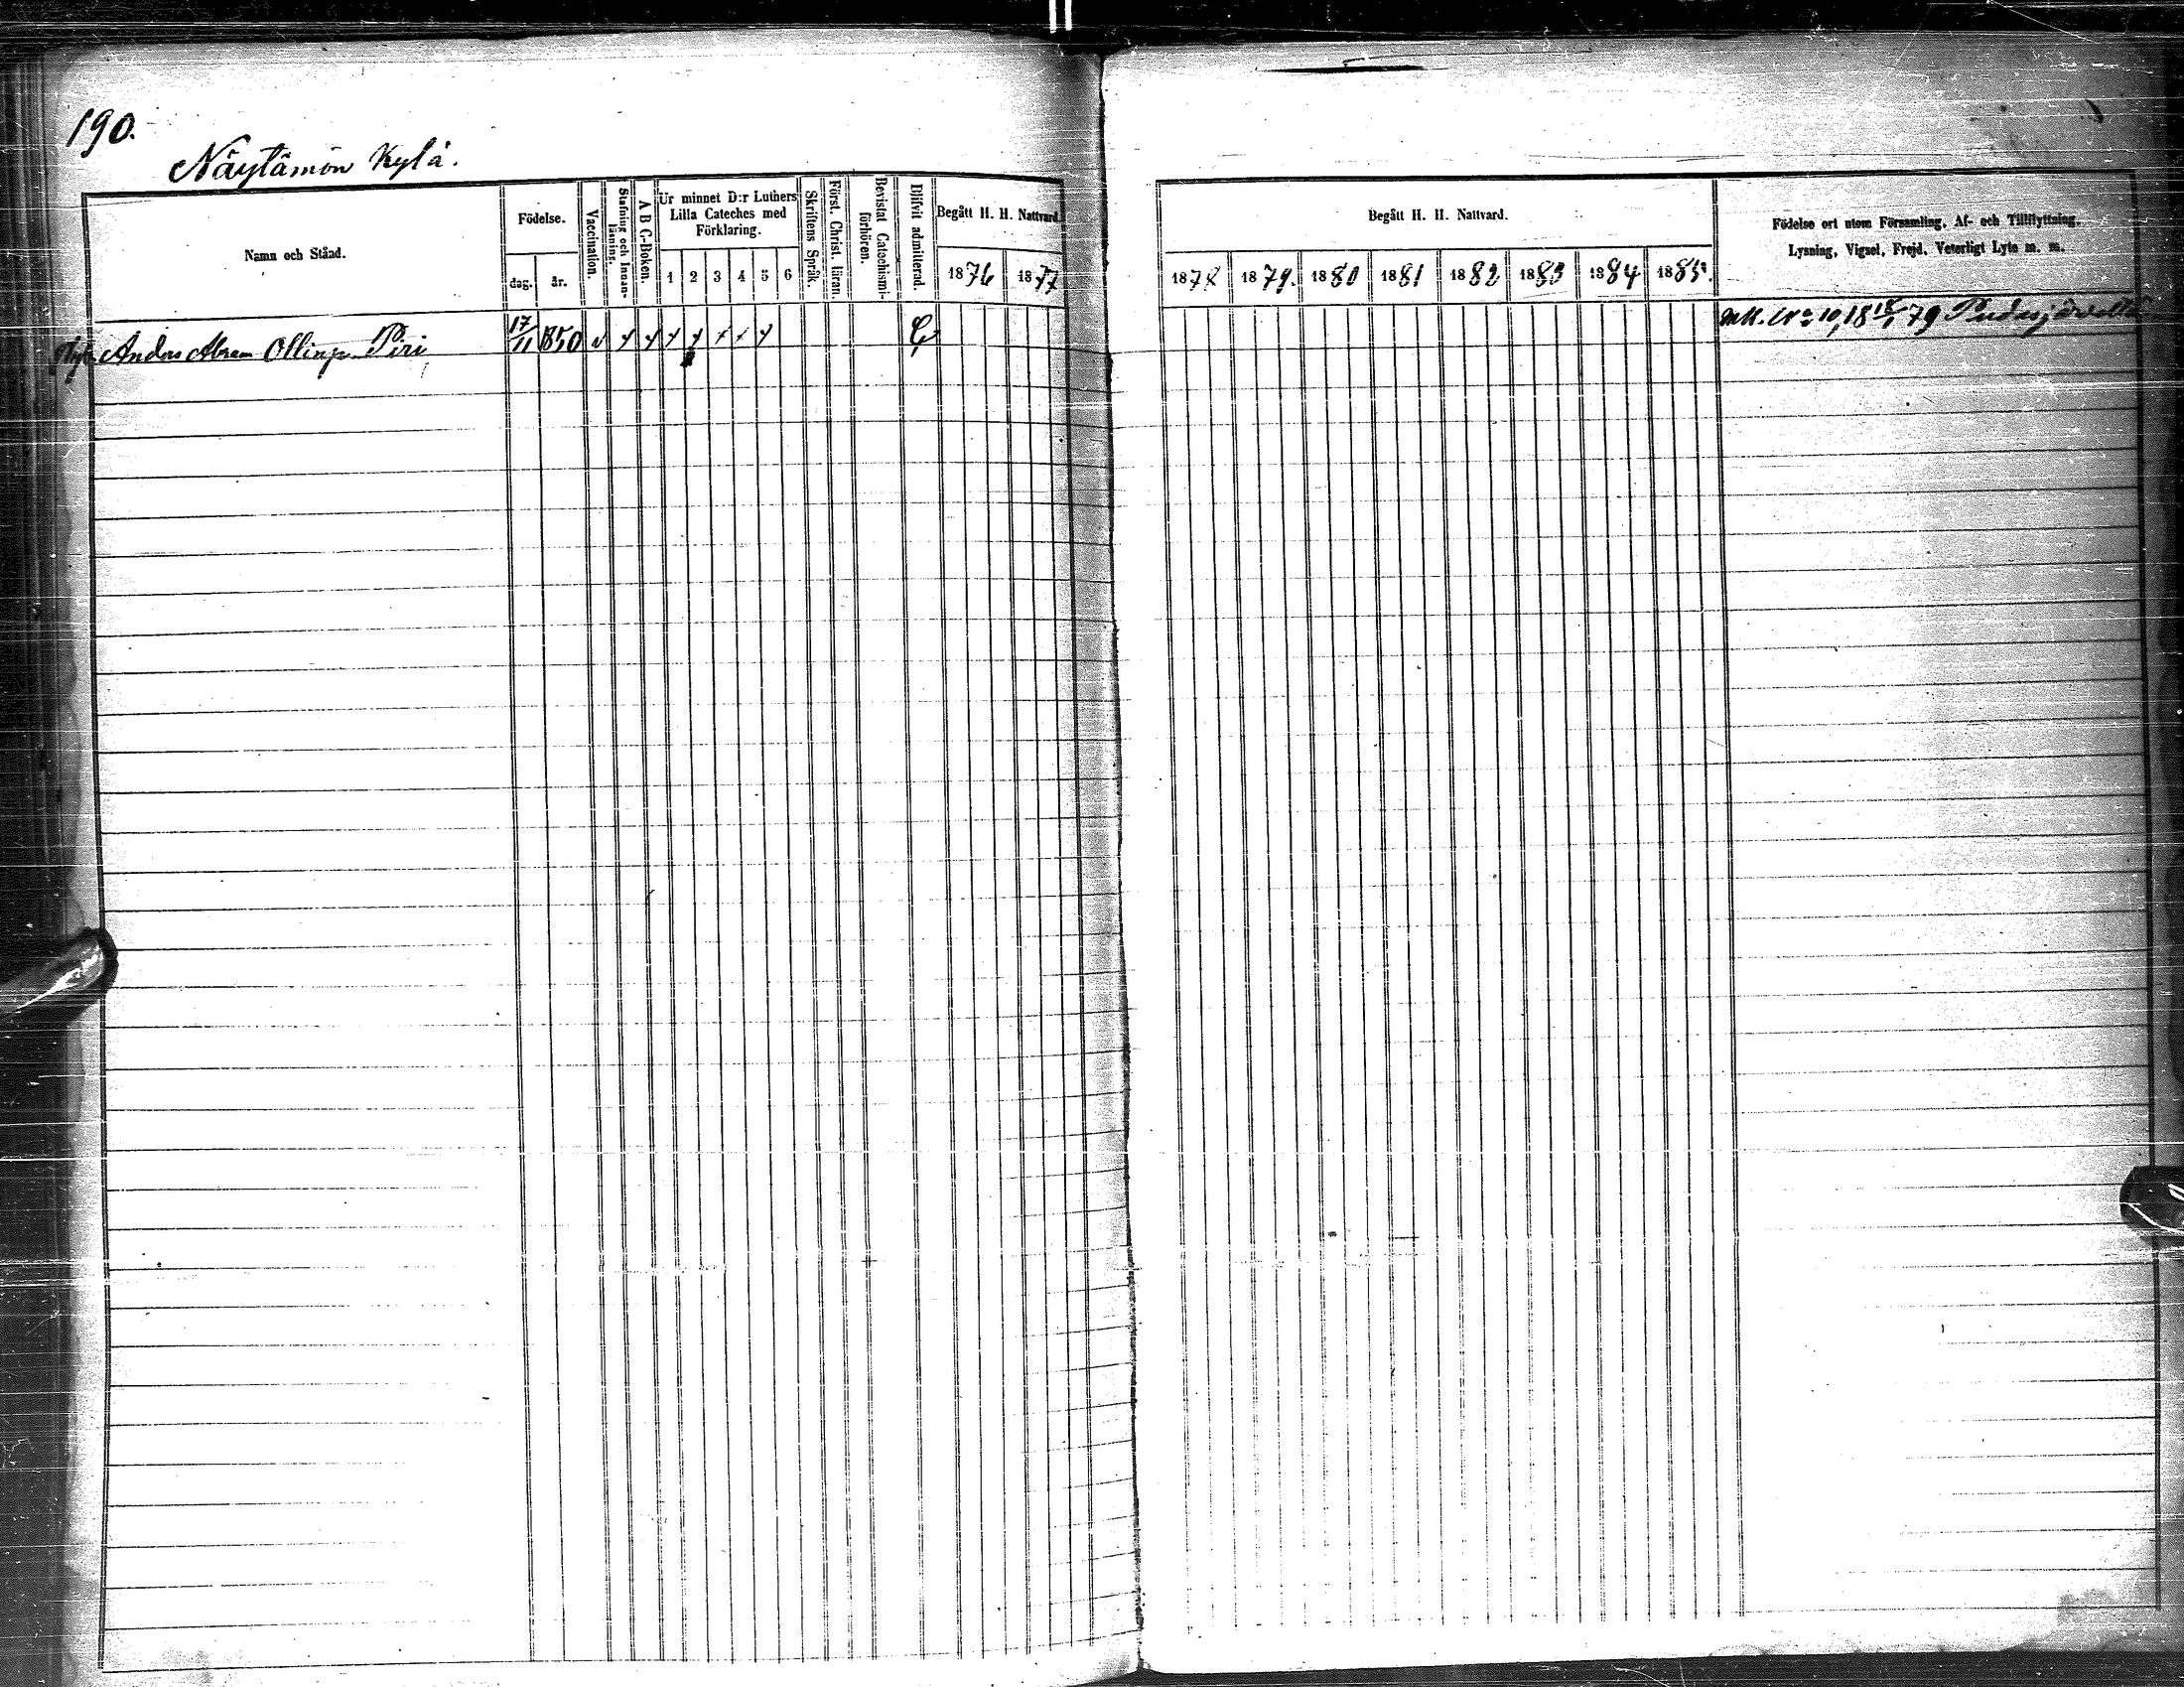 190.
Näytämön Kylä.
Namn och Stånd.
Födelse.
dag.
år.
Vaccination.
Stafning och Innan-
läsning.
A B C-Boken.
Ur minnet D:r Luthers
Lilla Cateches med
Förklaring.
1 2 3 4 5 6
Skriftens Språk.
Först. Christ. läran.
Bevistat Catechismi-
förhören.
Blifvit admitterad.
Begått H. H. Nattvard.
1876 1877
Begått H. H. Nattvard.
1878 1879. 1880 1881 1882 1883 1884 1885.
Födelse ort utom Församling, Af- och Tillflyttning.
Lysning, Vigsel, Frejd, Veterligt Lyte m. m.
Anders Abram Ollinp. Piri 17/11 1850
No 10, 18 79